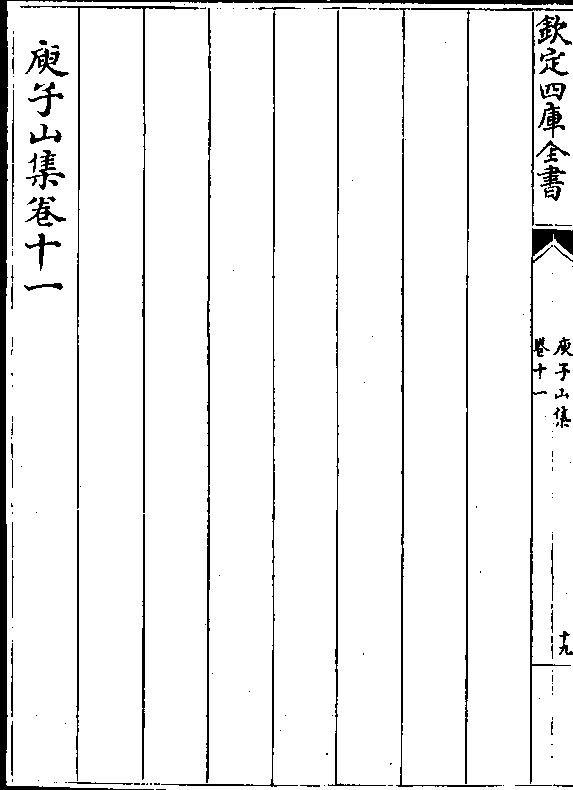 欽定四庫全書
庾子山集
卷十一
十九
庾子山集卷十一